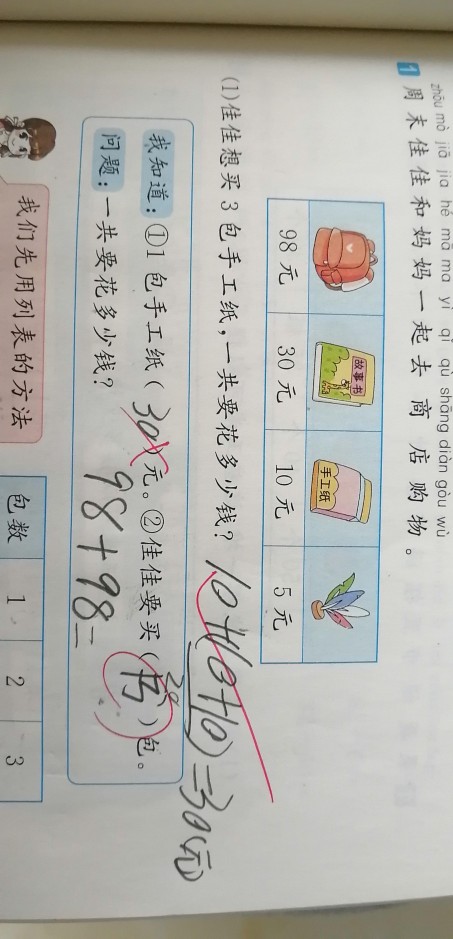 zhōu mò jiā jia hé mā ma yì qǐ qù shāng diàn gòu wù
1 周末佳佳和妈妈一起去商店购物。
故事书
手工纸
98元 30元 10元 5元
(1)佳佳想买3包手工纸,一共要花多少钱?
10+(10+10)=30(元)
我知道:①1包手工纸(30)元。②佳佳要买(书)包。
问题:一共要花多少钱?
98+98=
我们先用列表的方法
包数 1 2 3